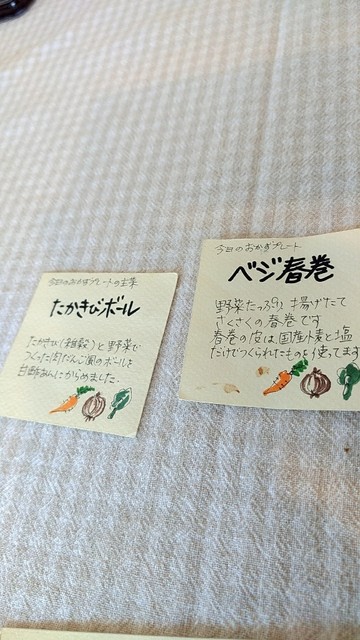 今日のおかずプレートの主菜
たかきびボール
たかきび(雑穀)と野菜で
つくった肉だんご風のボールを
甘酢あんにからめました。
今日のおかずプレート
ベジ春巻
野菜たっぷり 揚げたて
さくさくの春巻です
春巻の皮は国産小麦と塩
だけでつくられたものを使ってます